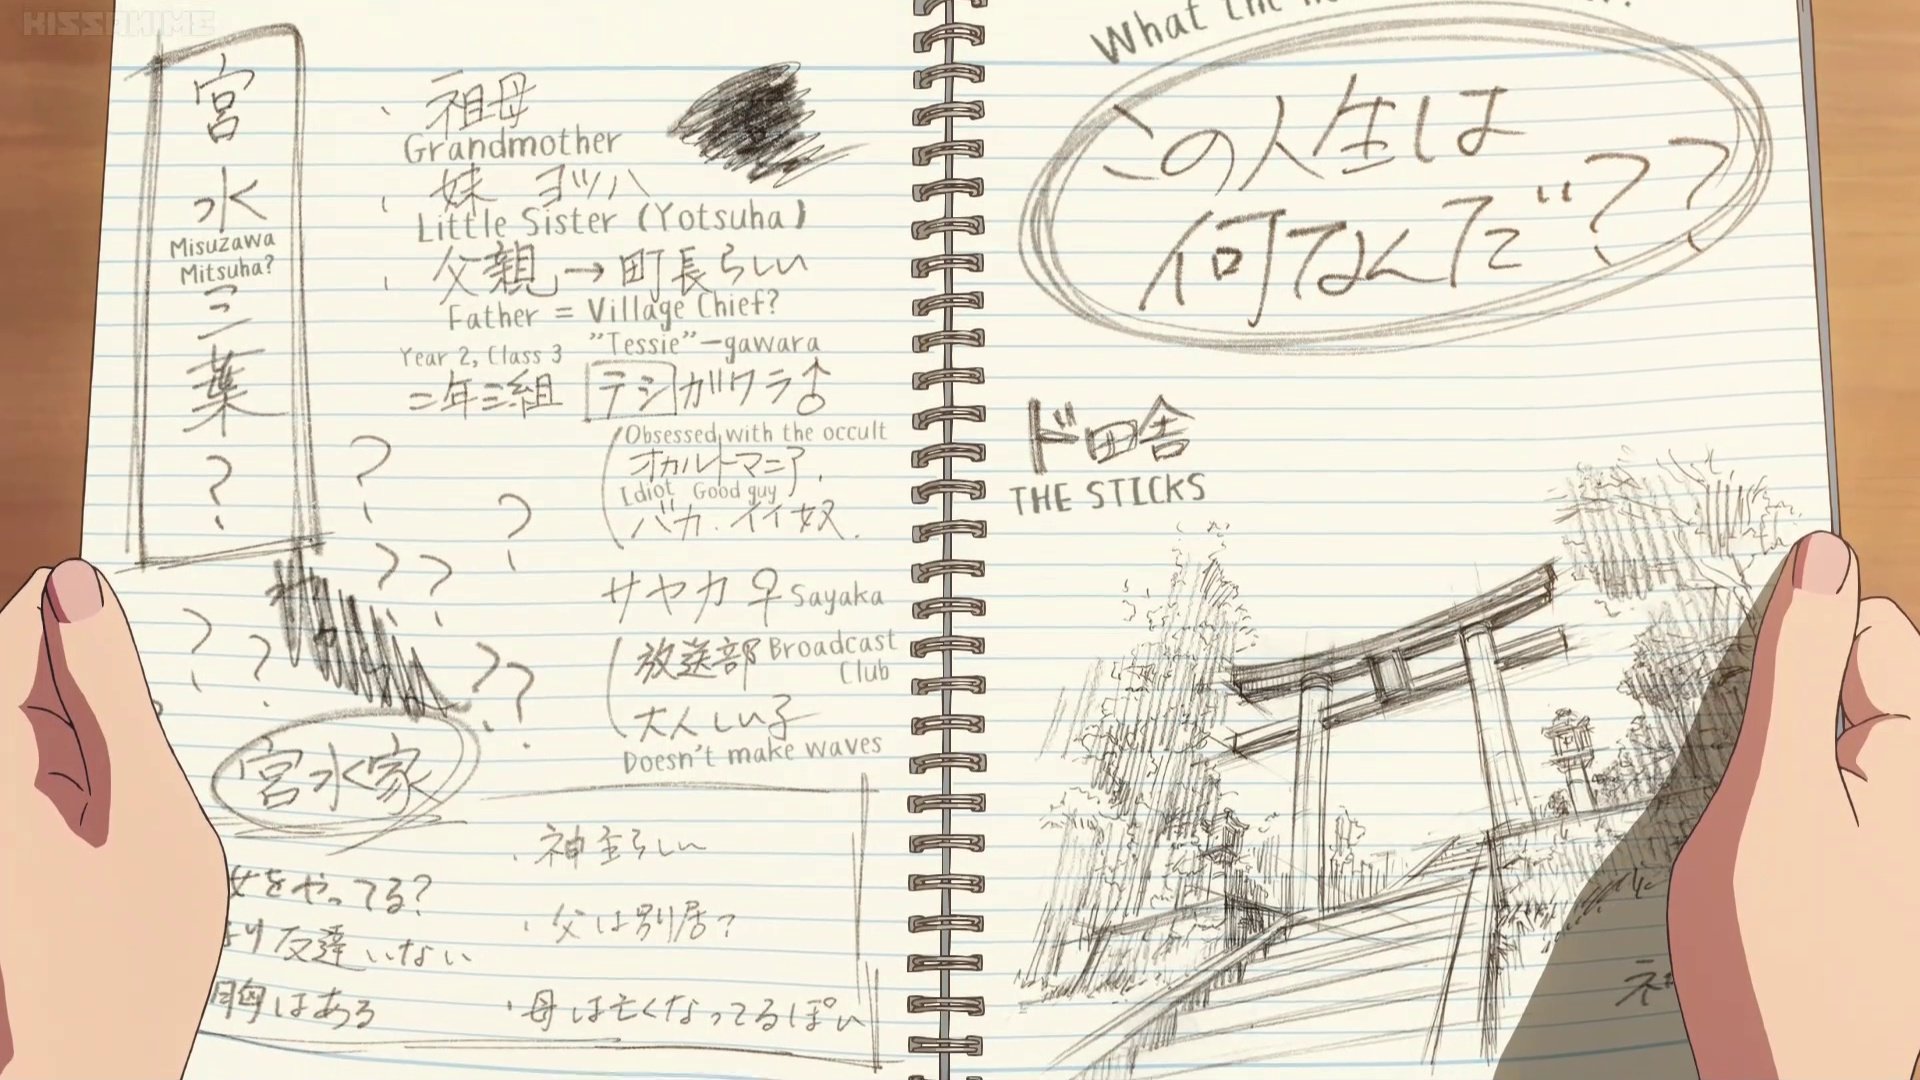 KISSANIME
宮水
Misuzawa
Mitsuha?
三葉?
、祖母
Grandmother
、妹 ヨツハ
Little Sister (Yotsuha)
、父親→町長らしい
Father = Village Chief?
Year 2, Class 3
"Tessie"-gawara
二年三組
テシガワラ♂
Obsessed with the occult
オカルトマニア.
Idiot Good guy
バカ.イイ奴.
? ? ? ?
? ? ? ?
サヤカ♀ Sayaka
放送部 Broadcast
Club
大人しい子
Doesn't make waves
宮水家
女をやってる?
友達いない
胸はある
・神主らしい
・父は別居?
・母は亡くなってるぽい
What the
この人生は
何なんだ??
ド田舎
THE STICKS